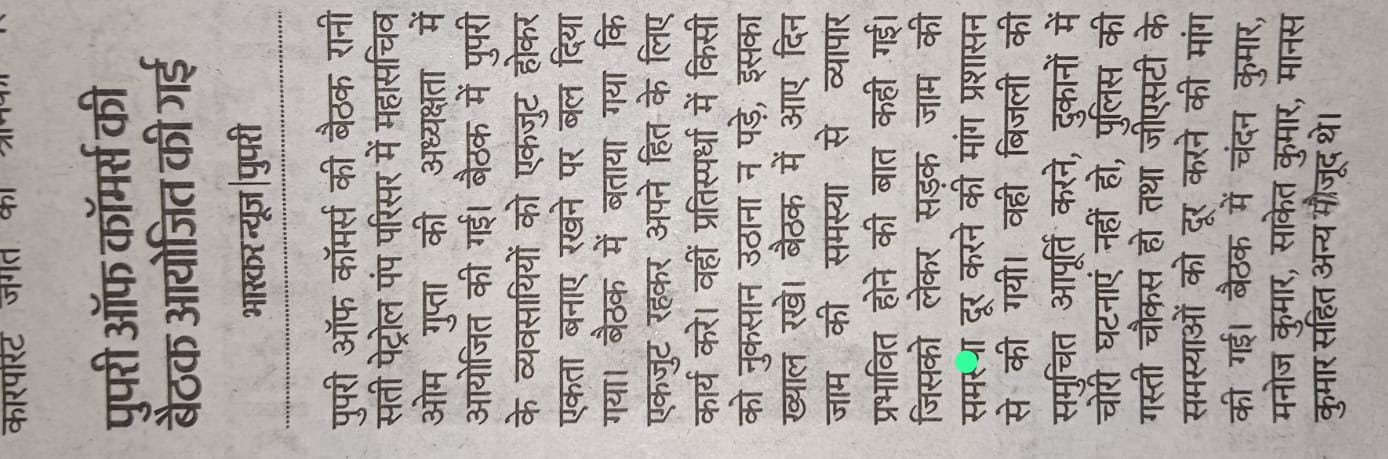 कारपोरेट जगत का
पुपरी ऑफ कॉमर्स की
बैठक आयोजित की गई
भास्कर न्यूज|पुपरी
पुपरी ऑफ कॉमर्स की बैठक रानी
सती पेट्रोल पंप परिसर में महासचिव
ओम गुप्ता की अध्यक्षता में
आयोजित की गई। बैठक में पुपरी
के व्यवसायियों को एकजुट होकर
एकता बनाए रखने पर बल दिया
गया। बैठक में बताया गया कि
एकजुट रहकर अपने हित के लिए
कार्य करे। वहीं प्रतिस्पर्धा में किसी
को नुकसान उठाना न पड़े, इसका
ख्याल रखे। बैठक में आए दिन
जाम की समस्या से व्यापार
प्रभावित होने की बात कही गई।
जिसको लेकर सड़क जाम की
दूर करने की मांग प्रशासन
से की गयी। वही बिजली की
समुचित आपूर्ति करने, दुकानों में
चोरी घटनाएं नहीं हो, पुलिस की
गस्ती चौकस हो तथा जीएसटी के
समस्याओं को दूर करने की मांग
की गई। बैठक में चंदन कुमार,
मनोज कुमार, साकेत कुमार, मानस
कुमार सहित अन्य मौजूद थे।